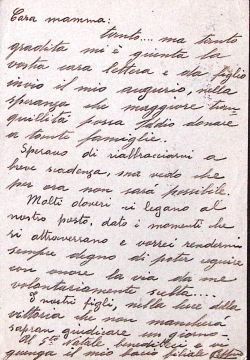 Cara mamma:
tanto... ma tanto
gradita mi è giunta la
vostra cara lettera e da figlio
invio il mio augurio, nella
speranza che maggiore tran-
quillità possa Iddio donare
a tante famiglie.
Speravo di riabbracciarvi a
breve scadenza, ma vedo che
per ora non sarà possibile.
Molti doveri ci legano al
nostro posto, dato i momenti che
si attraversano e vorrei rendermi
sempre degno di poter seguire
con onore la via da me
volontariamente scelta...
I nostri figli, nella luce della
vittoria che non mancherà
sapran giudicare un giorno.
Al Natale benediteci e vi
giunga il mio bacio